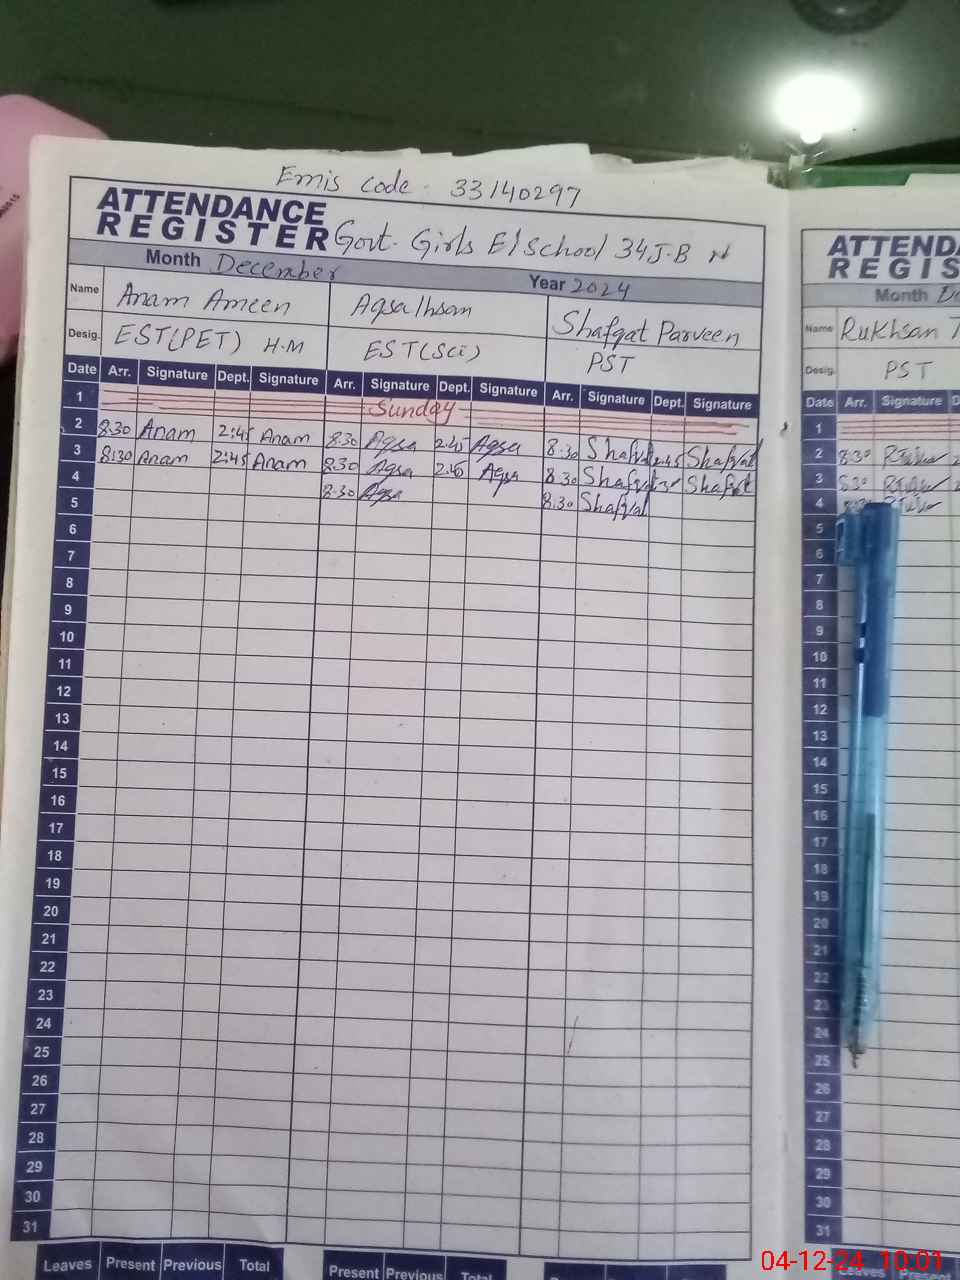 Emis code. 33140297
ATTENDANCE
REGISTER Govt. Girls E/School 34 J-B
Month December Year 2024
Name Anam Ameen Aqsa Ihsan Shafqat Parveen
Desig. EST(PET) H.M EST(Sci) PST
Date Arr. Signature Dept. Signature Arr. Signature Dept. Signature Arr. Signature Dept. Signature
1 Sunday
2 8:30 Anam 2:45 Anam 8:30 Aqsa 2:45 Aqsa 8:30 Shafqat 2:45 Shafqat
3 8:30 Anam 2:45 Anam 8:30 Aqsa 2:45 Aqsa 8:30 Shafqat Shafqat
4 8:30 Aqsa 8:30 Shafqat
5
6
7
8
9
10
11
12
13
14
15
16
17
18
19
20
21
22
23
24
25
26
27
28
29
30
31
Leaves Present Previous Total
Present Previous Total
ATTENDA
REGIS
Month
Name Rukhsan
Desig. PST
Date Arr. Signature
1
2 8:30
3 8:30
4
5
6
7
8
9
10
11
12
13
14
15
16
17
18
19
20
21
22
23
24
25
26
27
28
29
30
31
Leaves
04-12-24 10:01